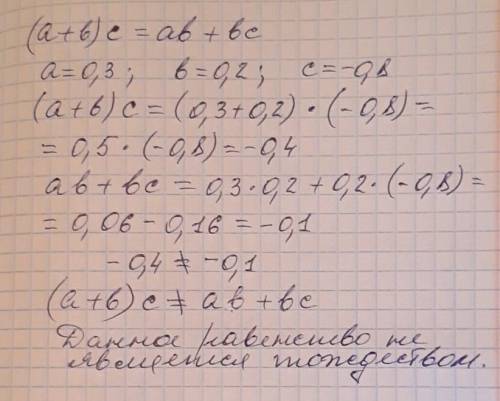 (a+b)c = ab + bc
a=0,3; b=0,2; c=-0,8
(a+b)c = (0,3+0,2)·(-0,8)=
= 0,5·(-0,8)=-0,4
ab+bc = 0,3·0,2+0,2·(-0,8)=
= 0,06-0,16=-0,1
-0,4≠-0,1
(a+b)c≠ab+bc
Данное равенство не
является тождеством.